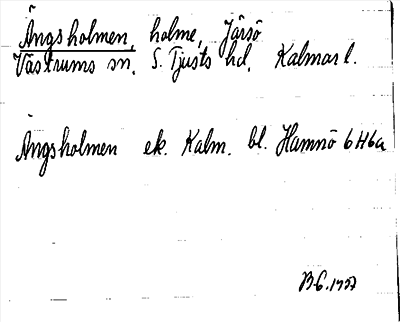 Ängsholmen, holme, Järsö
Västrums sn. S. Tjusts hd. Kalmar l.
Ängsholmen ek. Kalm. bl. Hamnö 6H6a
B.G. 1957